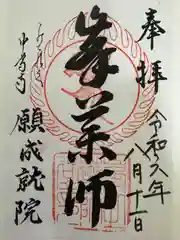 奉拝
令和六年
八月十一日
峯薬師
願成就院